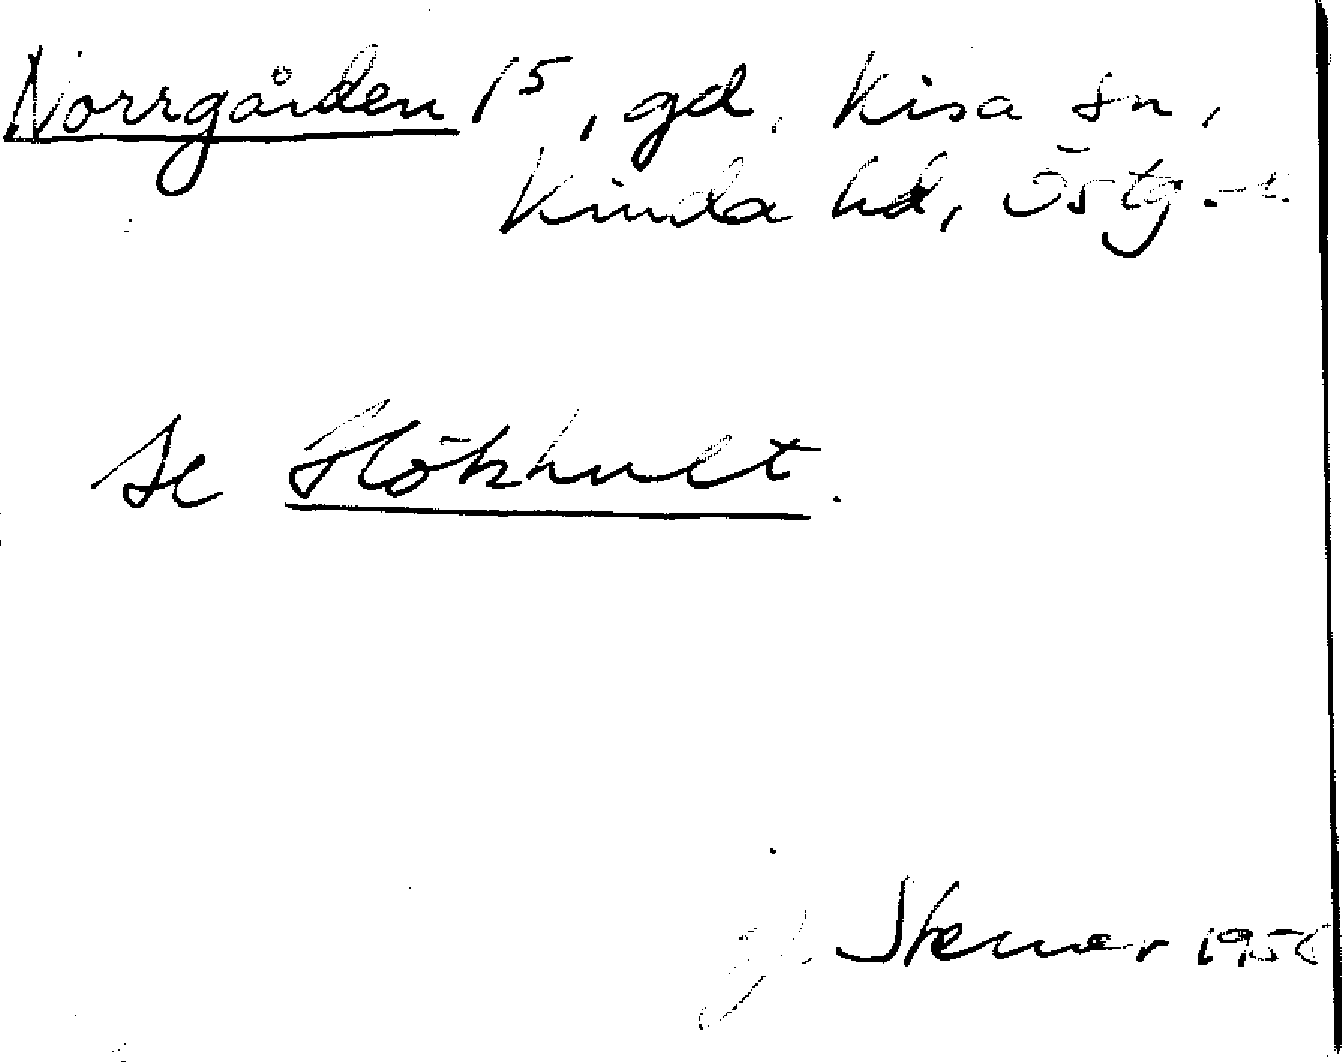 Norrgården 1⁵, gd, Kisa sn,
Kinda hd, Östg.
se Hökhult.
Stenner